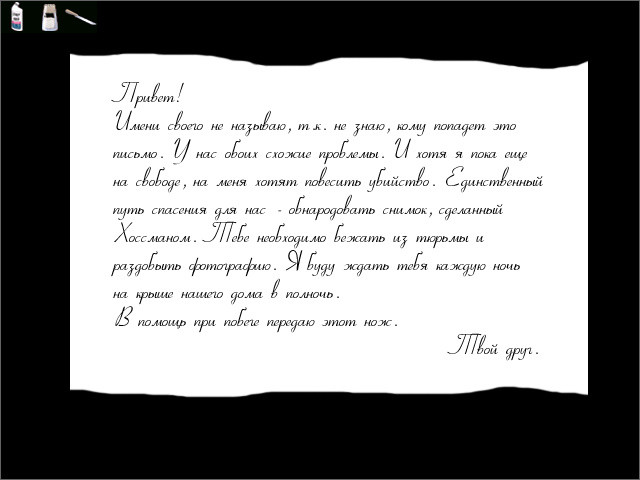 Привет!
Имени своего не называю, т.к. не знаю, кому попадет это
письмо. У нас обоих схожие проблемы. И хотя я пока еще
на свободе, на меня хотят повесить убийство. Единственный
путь спасения для нас - обнародовать снимок, сделанный
Хоссманом. Тебе необходимо бежать из тюрьмы и
раздобыть фотографию. Я буду ждать тебя каждую ночь
на крыше нашего дома в полночь.
В помощь при побеге передаю этот нож.
Твой друг.